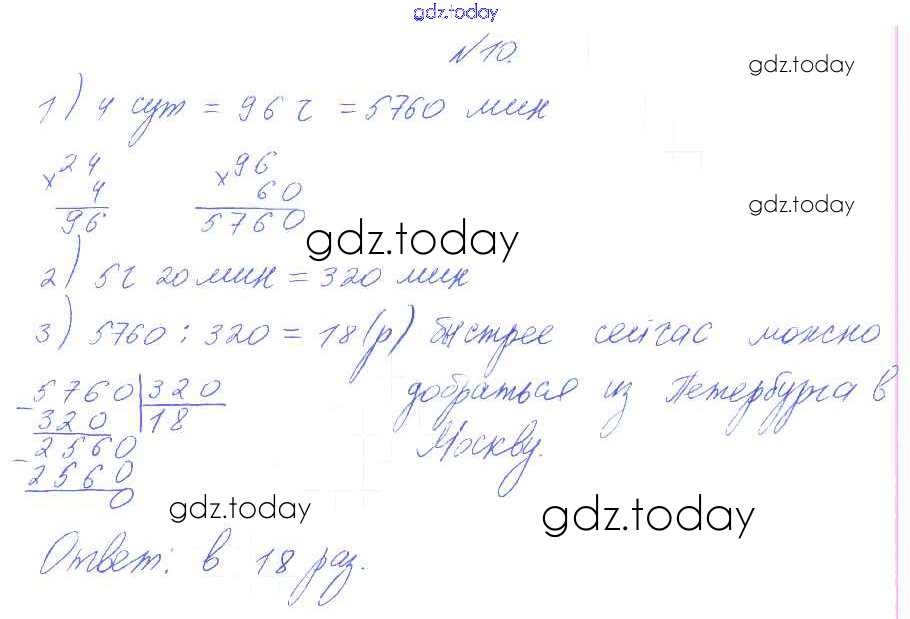 gdz.today
№10.
gdz.today
1) 4 сут = 96 ч = 5760 мин
×24 ×96
4 60
96 5760
gdz.today
gdz.today
2) 5ч 20 мин = 320 мин
3) 5760 : 320 = 18 (р) быстрее сейчас можно
добраться из Петербурга в
Москву.
-5760 320
320 18
-2560
2560
0
gdz.today
gdz.today
Ответ: в 18 раз.